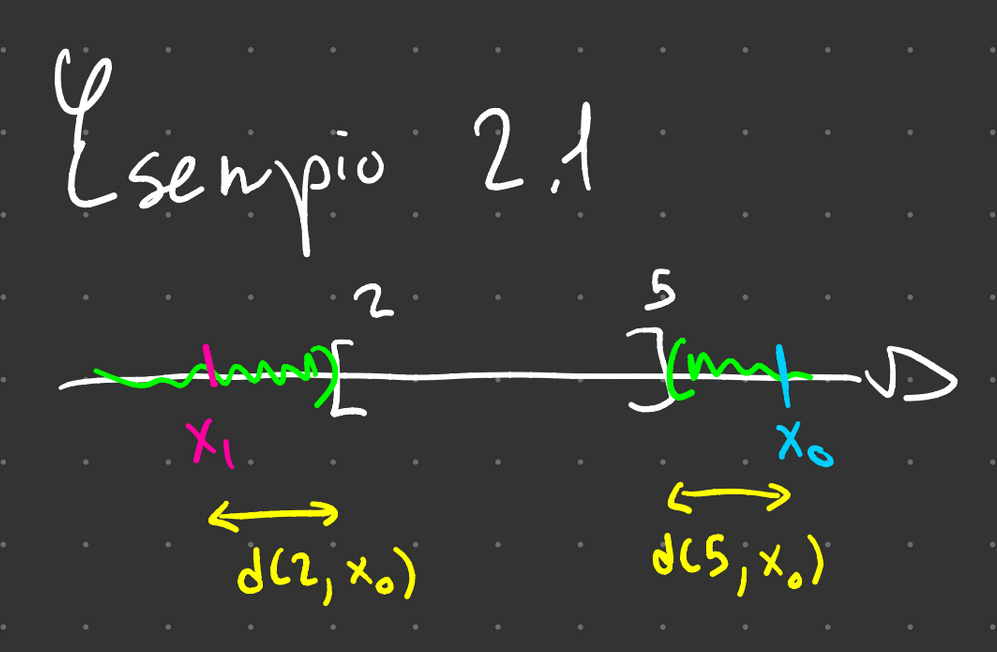 Esempio 2.1
2 5
[ ) ] (
x₁ x₀
d(2, x₀) d(5, x₀)